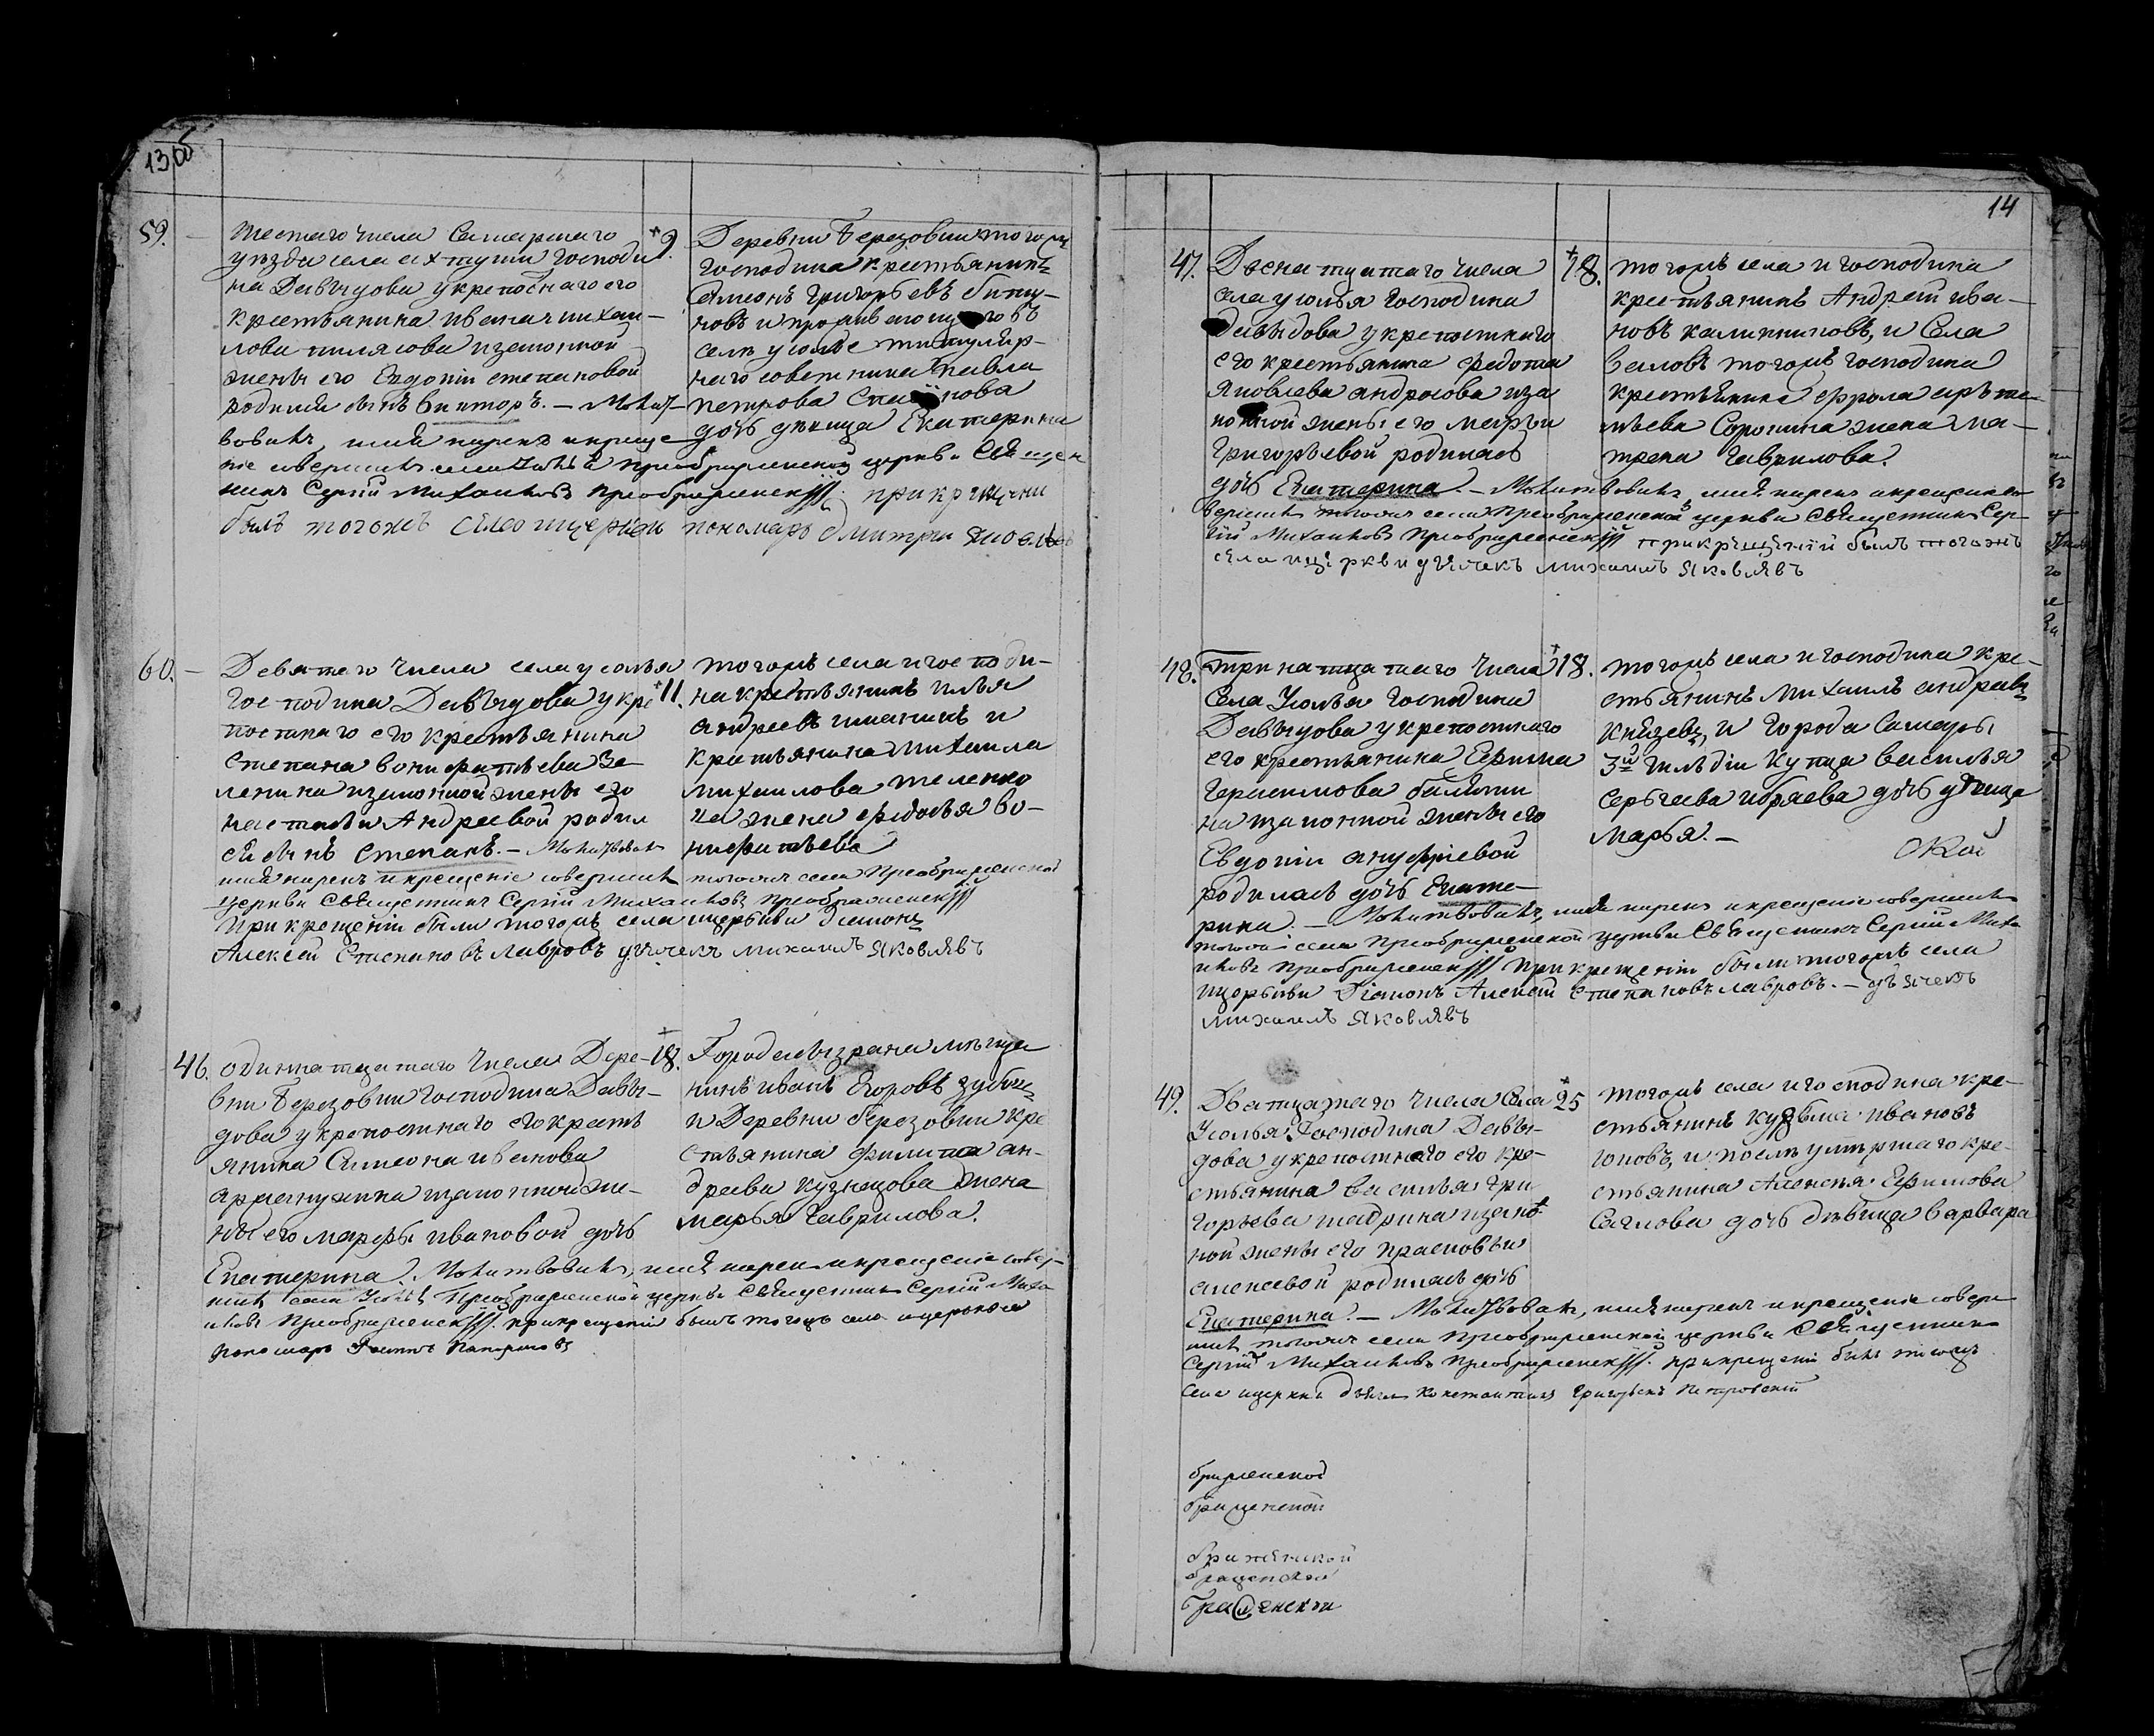 13 об
59. шестаго числа Самарскаго
уезда села ахтуши Господи
на Давыдова у крепостнаго его
крестьянина ивана михаи-
лова пилясова изаконной
жены его Евдокіи степановой
родился сынъ викторъ. — Молит-
вовалъ, имя нарекъ и креще
ніе совершилъ села Усолья Преображенской церкви Священ
никъ Сергій Михайловъ Преображенскій. при крещении
былъ тогожъ села и церкви пономарь дмитри
9. Деревни Березовки тогожъ
Господина крестьянинъ
Симеонъ Григорьевъ
новъ и проживающаго въ
селе усолье титуляр-
наго советника павла
петрова
дочь девица Екатерина
60. Девятаго числа села усолья
Господина Давыдова у кре
постнаго его крестьянина
степана вонифатьева За
ленина изаконной жены его
настасьи Андреевой родил
ся сынъ степанъ. — Молитвовалъ
имя нарекъ и крещеніе совершилъ тогожъ села Преображенской
церкви Священникъ Сергій Михайловъ Преображенскій
При крещеніи были тогожъ села и церкви діаконъ
Алексей Степановъ лавровъ дьячекъ михаилъ яковлявъ
11. тогожъ села и господи-
на крестьянинъ илья
андреевъ и
крестьянина михаила
михаилова теленко
ва жена федосья во-
нифатьева
46. одиннатцатаго числа Дере-
вни Березовки Господина Давы-
дова у крепостнаго его кресть
янина Симеона иванова
изаконной же-
ны его марфы ивановой дочь
Екатерина. Молитвовалъ, имя нарекъ и крещеніе совер-
шилъ села Усолья Преображенской церкви Священникъ Сергій Миха
иловъ Преображенскій. при крещеніи былъ тогожъ села и церкви
пономарь
18. Города сызрана меща
нинъ иванъ Егоровъ
и Деревни березовки кре
стьянина филипа ан-
дреева кузнецова жена
марья Гаврилова.
14
47. Двенатцатаго числа
села усолья Господина
Давыдова у крепостнаго
его крестьянина федота
яковлева андросова иза
конной жены его марьи
Григорьевой родилась
дочь Екатерина. — Молитвовалъ, имя нарекъ и крещение со
вершилъ тогожъ села Преображенской церкви Священникъ Сер-
гій Михайловъ Преображенскій при крещении былъ тогожъ
села ицеркви дьячекъ михаилъ яковлявъ
18. тогожъ села и господина
крестьянинъ Андрей ива-
новъ калинниковъ, и Села
валовъ тогожъ господина
крестьянина фрола арьте
мьева Сорокина жена ма-
трена Гаврилова.
48. Тринатцатаго числа
Села Усолья Господина
Давыдова у крепостнаго
его крестьянина Ефима
Герасимова
на изаконной жены его
Евдокіи ануфріевой
родилась дочь Екате-
рина. — Молитвовалъ, имя нарекъ и крещеніе совершилъ
тогожъ села Преображенской церкви Священникъ Сергій Миха
иловъ Преображенскій При крещеніи были тогожъ села
ицеркви Діаконъ Алексей степановъ лавровъ. — дьячекъ
михаилъ яковлявъ
18. тогожъ села и господина кре-
стьянинъ михаилъ андреевъ
князевъ, и Города Самары
3й Гильдіи купца василья
Сергеева дочь девица
марья. —
49. Дватцатаго числа Села
Усолья Господина Давы-
дова у крепостнаго его кре-
стьянина василья гри
горьева шадрина изакон
ной жены его прасковьи
алексевой родилась дочь
Екатерина. — Молитвовалъ, имя нарекъ и крещеніе совер
шилъ тогожъ села Преображенской церкви Священникъ
Сергій Михайловъ Преображенскій. при крещеніи былъ тогожъ
села ицеркви дьячекъ константинъ Григорьевъ Петровскій
25 тогожъ села и господина кре-
стьянинъ кузьма ивановъ
и после умершаго кре-
стьянина Алексея Ефимова
дочь девица варвара
браженской